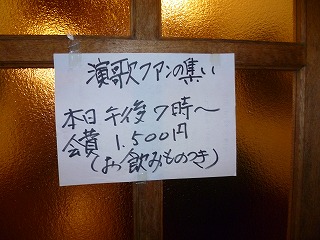 演歌ファンの集い
本日 午後7時〜
会費 1.500円
(お飲みものつき)